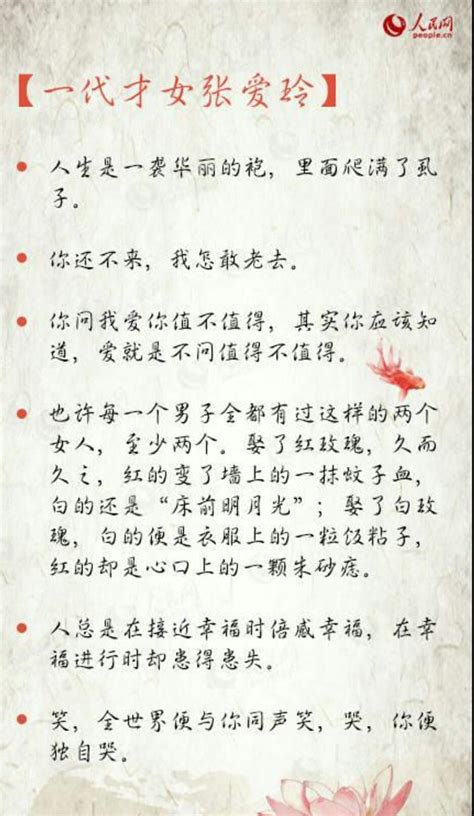 人民网
people.cn
【一代才女张爱玲】
• 人生是一袭华丽的袍，里面爬满了虱
子。
• 你还不来，我怎敢老去。
• 你问我爱你值不值得，其实你应该知
道，爱就是不问值得不值得。
• 也许每一个男子全都有过这样的两个
女人，至少两个。娶了红玫瑰，久而
久之，红的变了墙上的一抹蚊子血，
白的还是“床前明月光”；娶了白玫
瑰，白的便是衣服上的一粒饭粘子，
红的却是心口上的一颗朱砂痣。
• 人总是在接近幸福时倍感幸福，在幸
福进行时却患得患失。
• 笑，全世界便与你同声笑，哭，你便
独自哭。